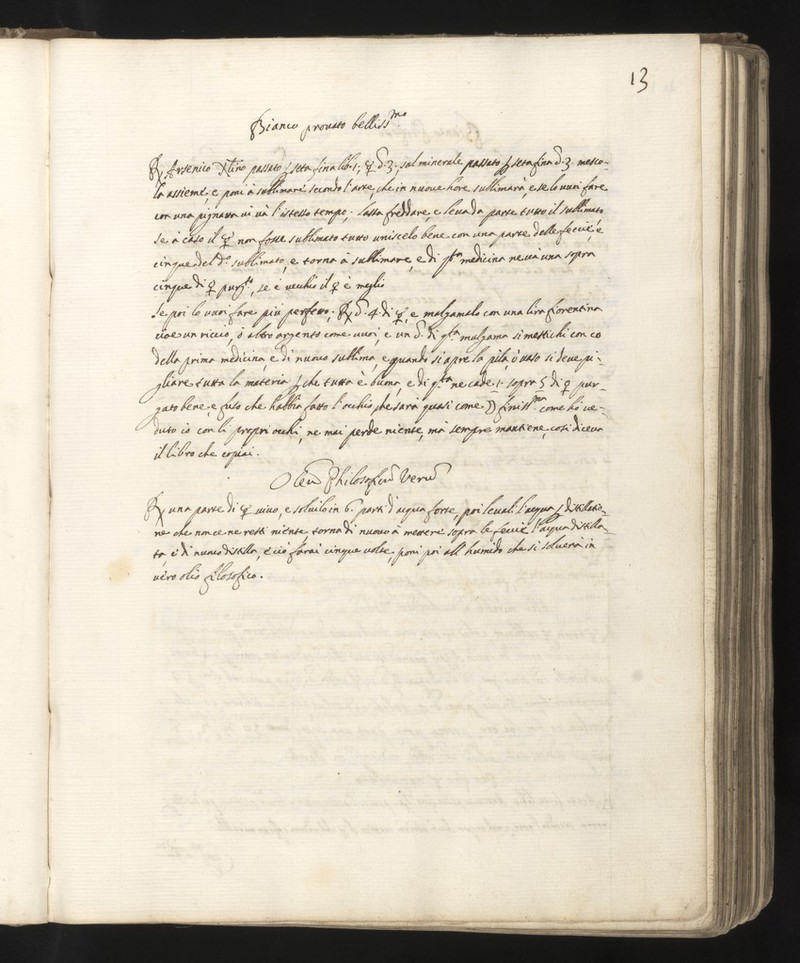 13
Bianco prouato belliss.mo
℞ Arsenico passato p seta fina lib. 1; ☿ d. 3; sal minerale passato p seta fina d. 3 mesco-
la assieme, e poni à sublimare secondo l'arte, che in nuoue hore sublimarà, e se lo uuoi fare
con una pignata ui uà l'istesso tempo; lassa freddare, e leua da parte tutto il sublimato
se à caso il ☿ non fosse sublimato tutto uniscelo bene con una parte delle feccie, e
cinque del d.o sublimato, e torna à sublimare, e di q.ta medicina ne uà una sopra
cinque di ♀ purg.to, se è uecchio il ♀ è meglio
Se poi lo uuoi fare più perfetto; ℞ d. 4. di ☿, e malgamalo con una lira fiorentina
cioè un riccio, ò altro argento come uuoi, e un d. di q.ta malgama si mettichi con
della prima medicina, e di nuouo sublima, e quando si apre la pila, ò uaso si deue pi-
gliare tutta la materia p che tutta è buona, e di q.ta ne cade 1. sopra 5 di ♀ pur-
gato bene, e fuso che habbia fatto l'occhio, che sarà quasi come ☽ finiss.ma come hò ue-
duto io con li proprii occhi, ne mai perde niente, mà sempre mantiene, cosi diceua
il libro che copiai.
Oleũ Philosoficũ Verũ
℞ una parte di ☿ uiuo, e soluilo in 6. parti d'acqua forte, poi leuali l'acqua p distillatio-
ne che non ce ne resti niente, torna di nuouo à mettere sopra le feccie l'acqua distilla-
ta, e di nuouo distilla, e ciò farai cinque uolte, poni poi all'humido che si soluerà in
uero olio filosofico.